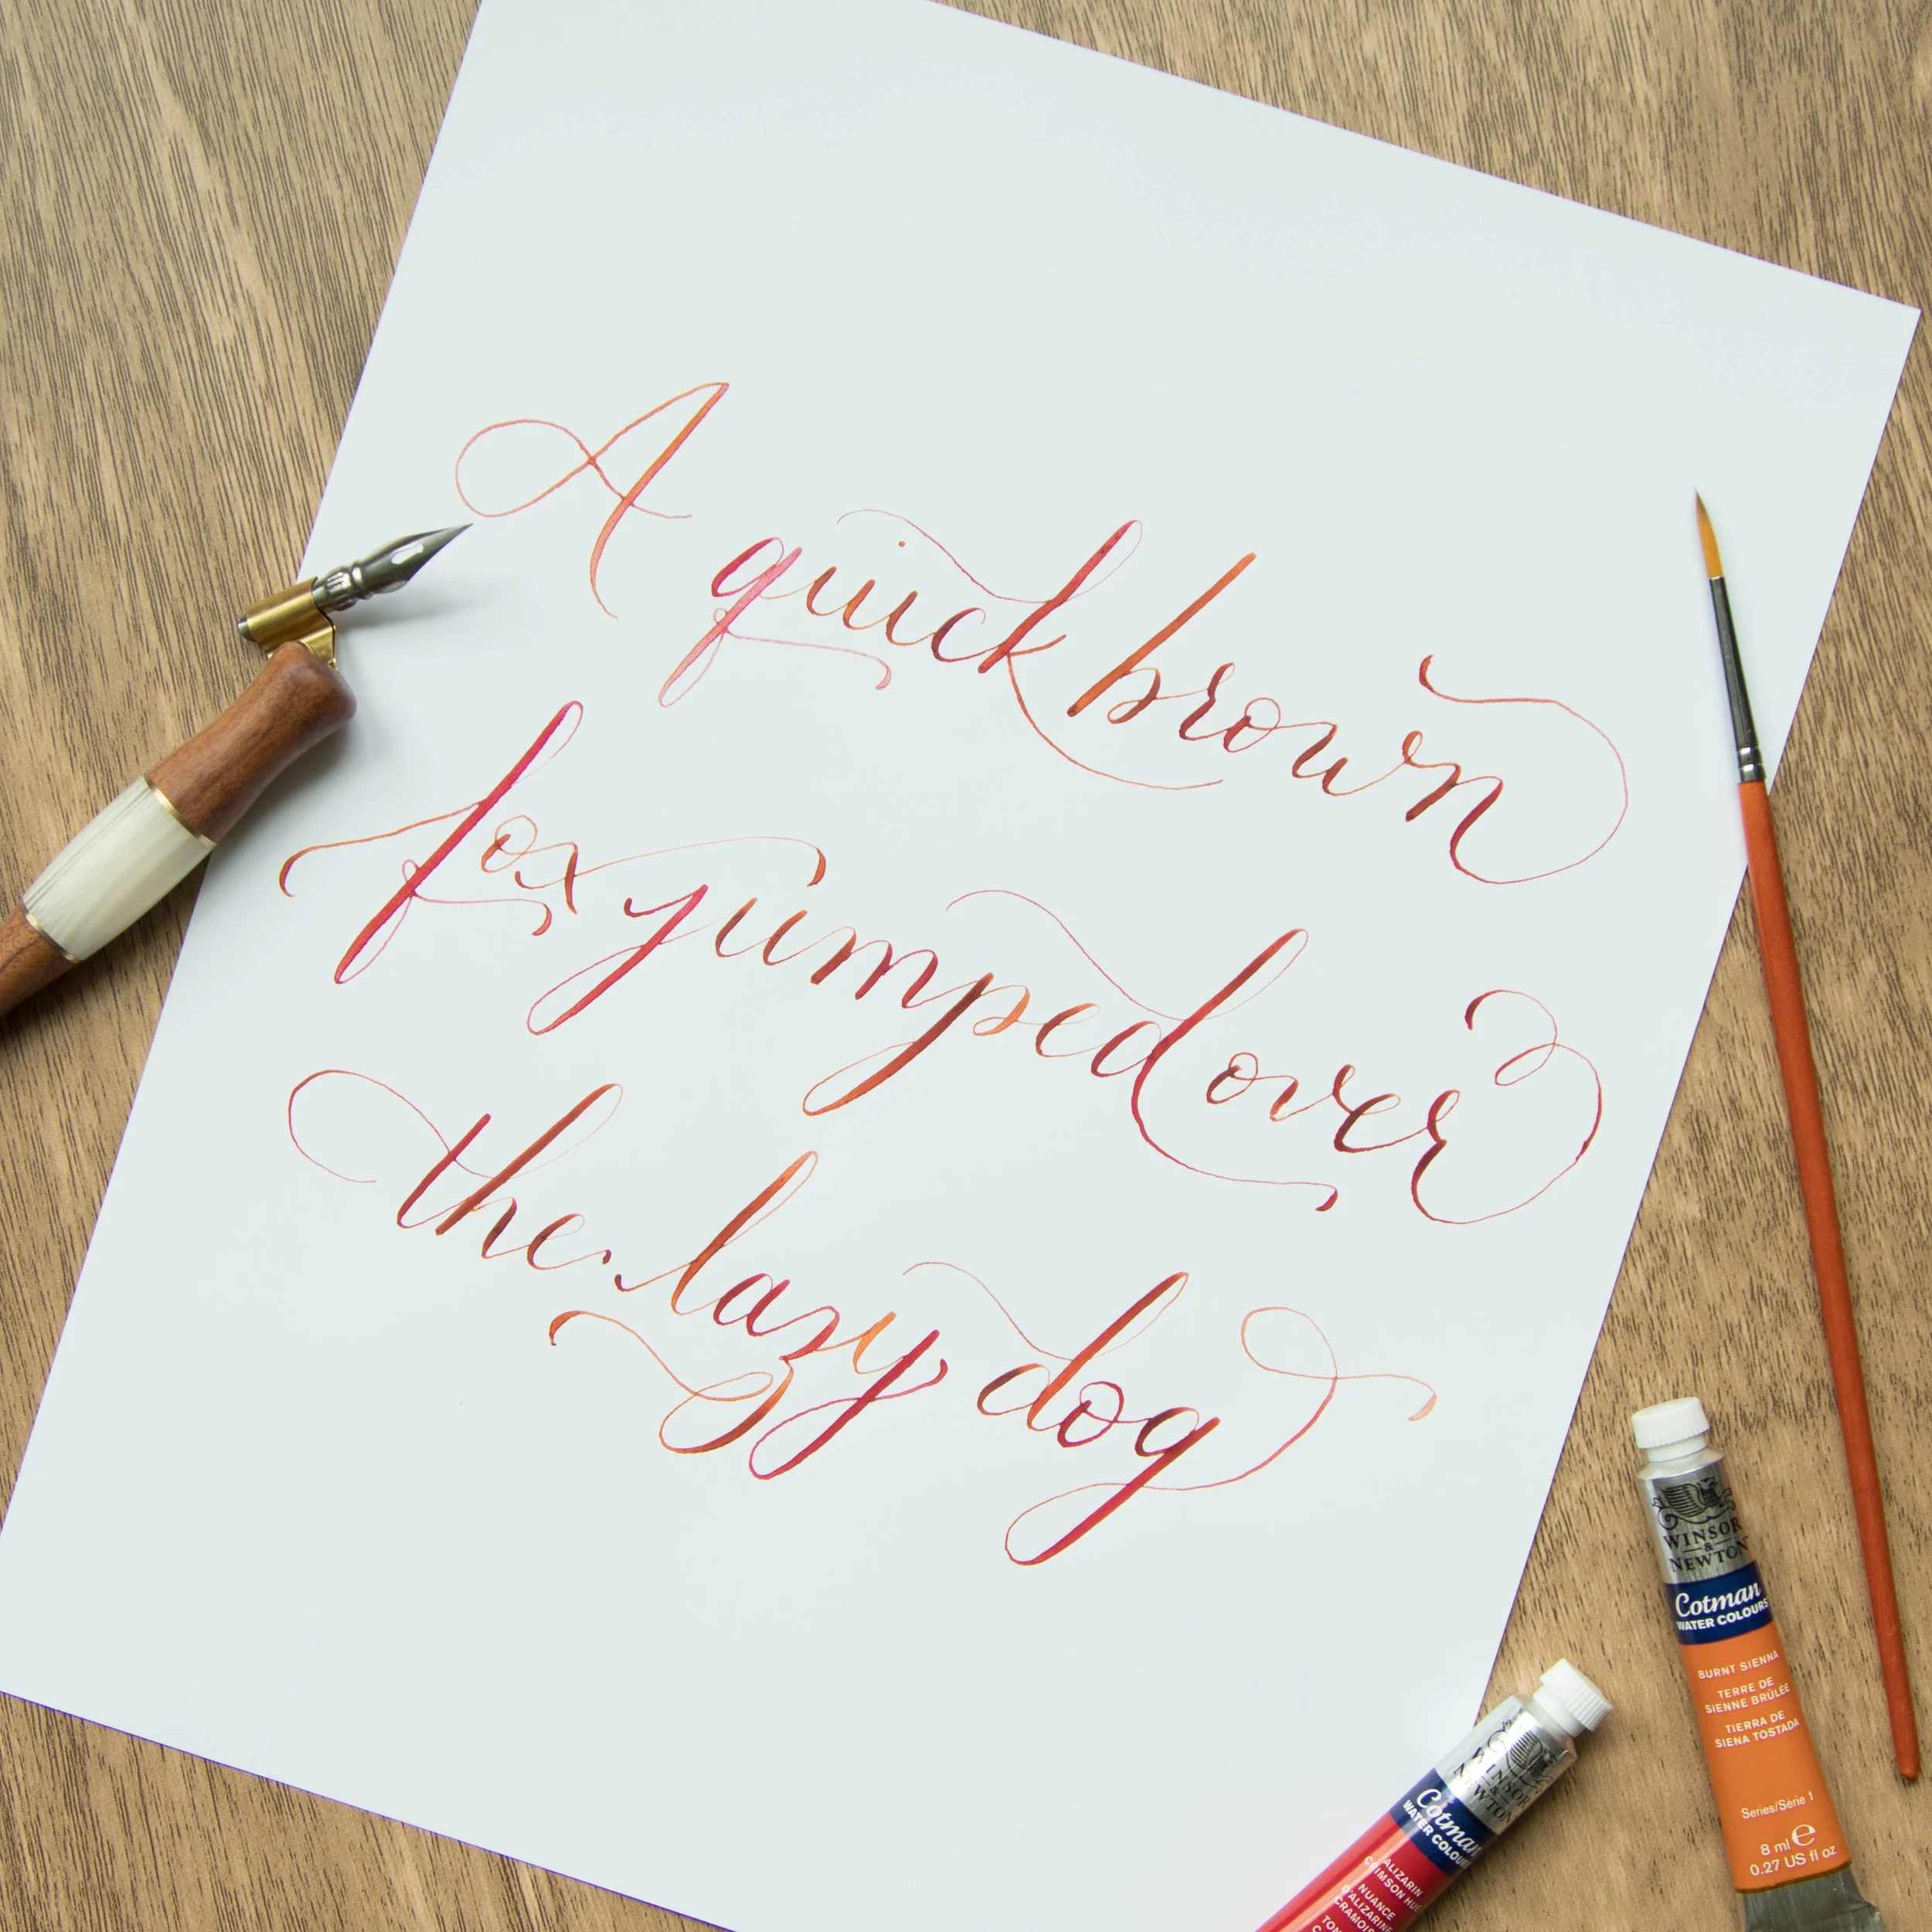 A quick brown
fox jumped over
the lazy dog
WINSOR
&
NEWTON
Cotman
WATER COLOURS
BURNT SIENNA
TERRE DE
SIENNE BRÛLÉE
TIERRA DE
SIENA TOSTADA
Series/Série 1
8 ml e
0.27 US fl oz
WINSOR
&
NEWTON
Cotman
WATER COLOURS
ALIZARIN
CRIMSON HUE
NUANCE
D'ALIZARINE